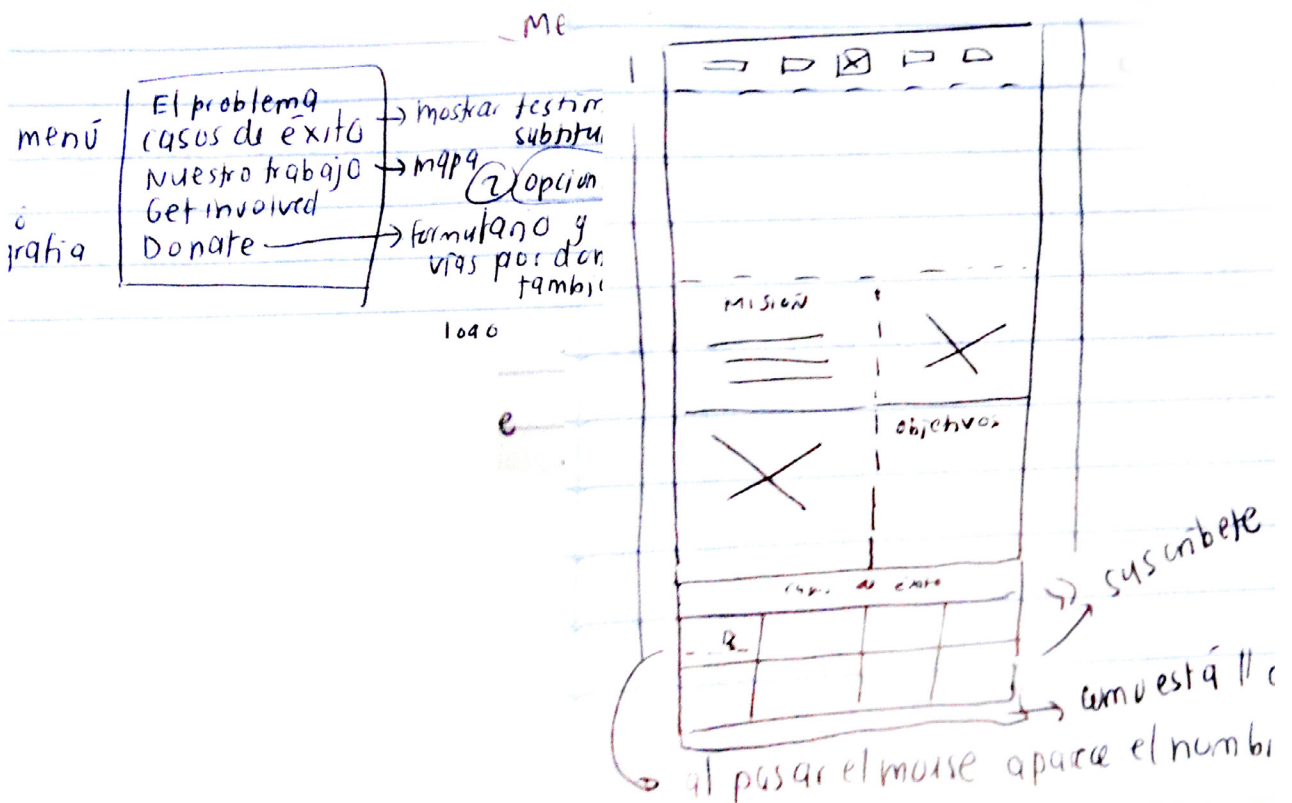 ME
menú
El problema
casos de éxito
Nuestro trabajo
Get involved
Donate
→ mostrar
→ mapa
2 opcion
→ formulario y
vías por
logo
e
MISIÓN
objetivos
de éxito
suscríbete
→ como está
al pasar el mouse aparece el